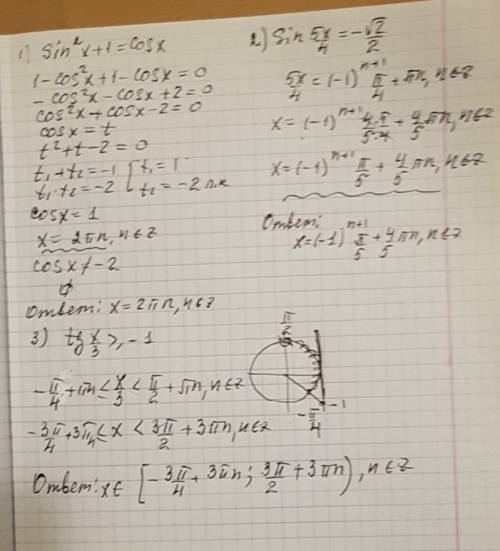 1) Sin²x+1=cosx
1-cos²x+1-cosx=0
-cos²x-cosx+2=0
cos²x+cosx-2=0
cosx=t
t²+t-2=0
t₁+t₂=-1 [t₁=1
t₁·t₂=-2 t₂=-2 п.к
cosx=1
x=2πn, n∈z
cosx≠-2
∅
Ответ: x=2πn, n∈z
2) Sin 5x/4=-√2/2
5x/4=(-1)ⁿ⁺¹ π/4+πn, n∈z
x=(-1)ⁿ⁺¹ 4π/5·4+4/5 πn, n∈z
x=(-1)ⁿ⁺¹ π/5+4/5 πn, n∈z
Ответ:
x=(-1)ⁿ⁺¹ π/5+4/5 πn, n∈z
3) tg x/3 ≥ -1
-π/4+πn≤x/3<π/2+πn, n∈z
-3π/4+3πn≤x<3π/2+3πn, n∈z
π/2
-π/4
-1
Ответ: x∈[-3π/4+3πn; 3π/2+3πn), n∈z